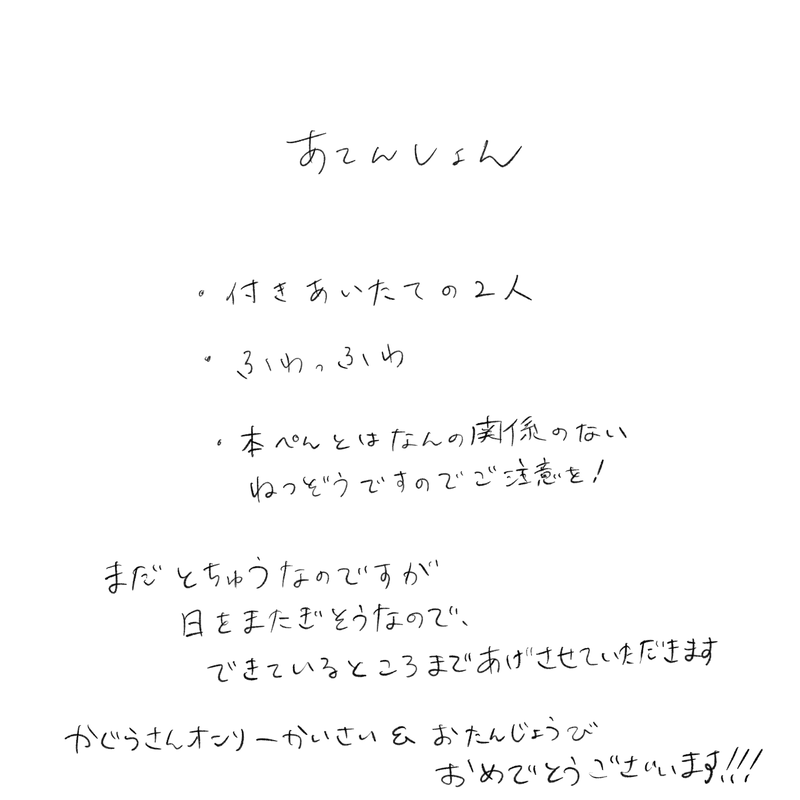 あてんしょん
・付きあいたての2人
・ふわっふわ
・本ぺんとはなんの関係のない
ねつぞうですのでご注意を!
まだとちゅうなのですが
日をまたぎそうなので、
できているところまであげさせていただきます
かぐらさんオンリーかいさい & おたんじょうび
おめでとうございます!!!